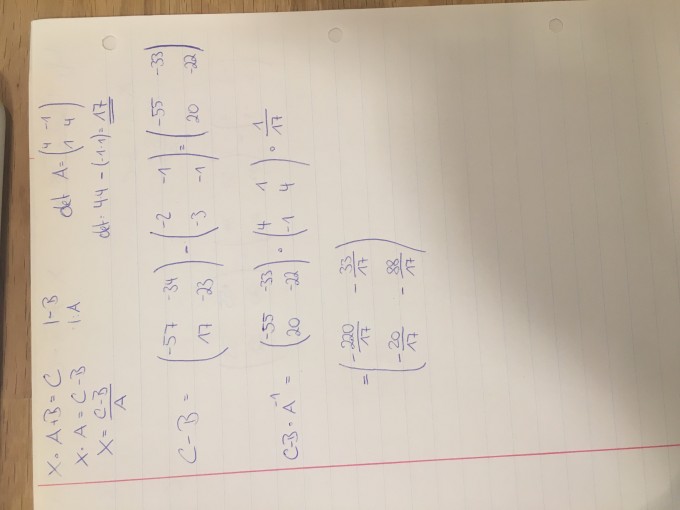 X · A + B = C | - B
X · A = C - B | : A
X = C-B / A
det A = (4 -1
1 4)
det: 4·4 - (-1·1) = 17
C - B = (-57 -34
17 -23) - (-2 -1
-3 -1) = (-55 -33
20 -22)
C-B · A^-1 = (-55 -33
20 -22) · (4 1
-1 4) · 1/17
= (-220/17 -33/17
-20/17 -88/17)